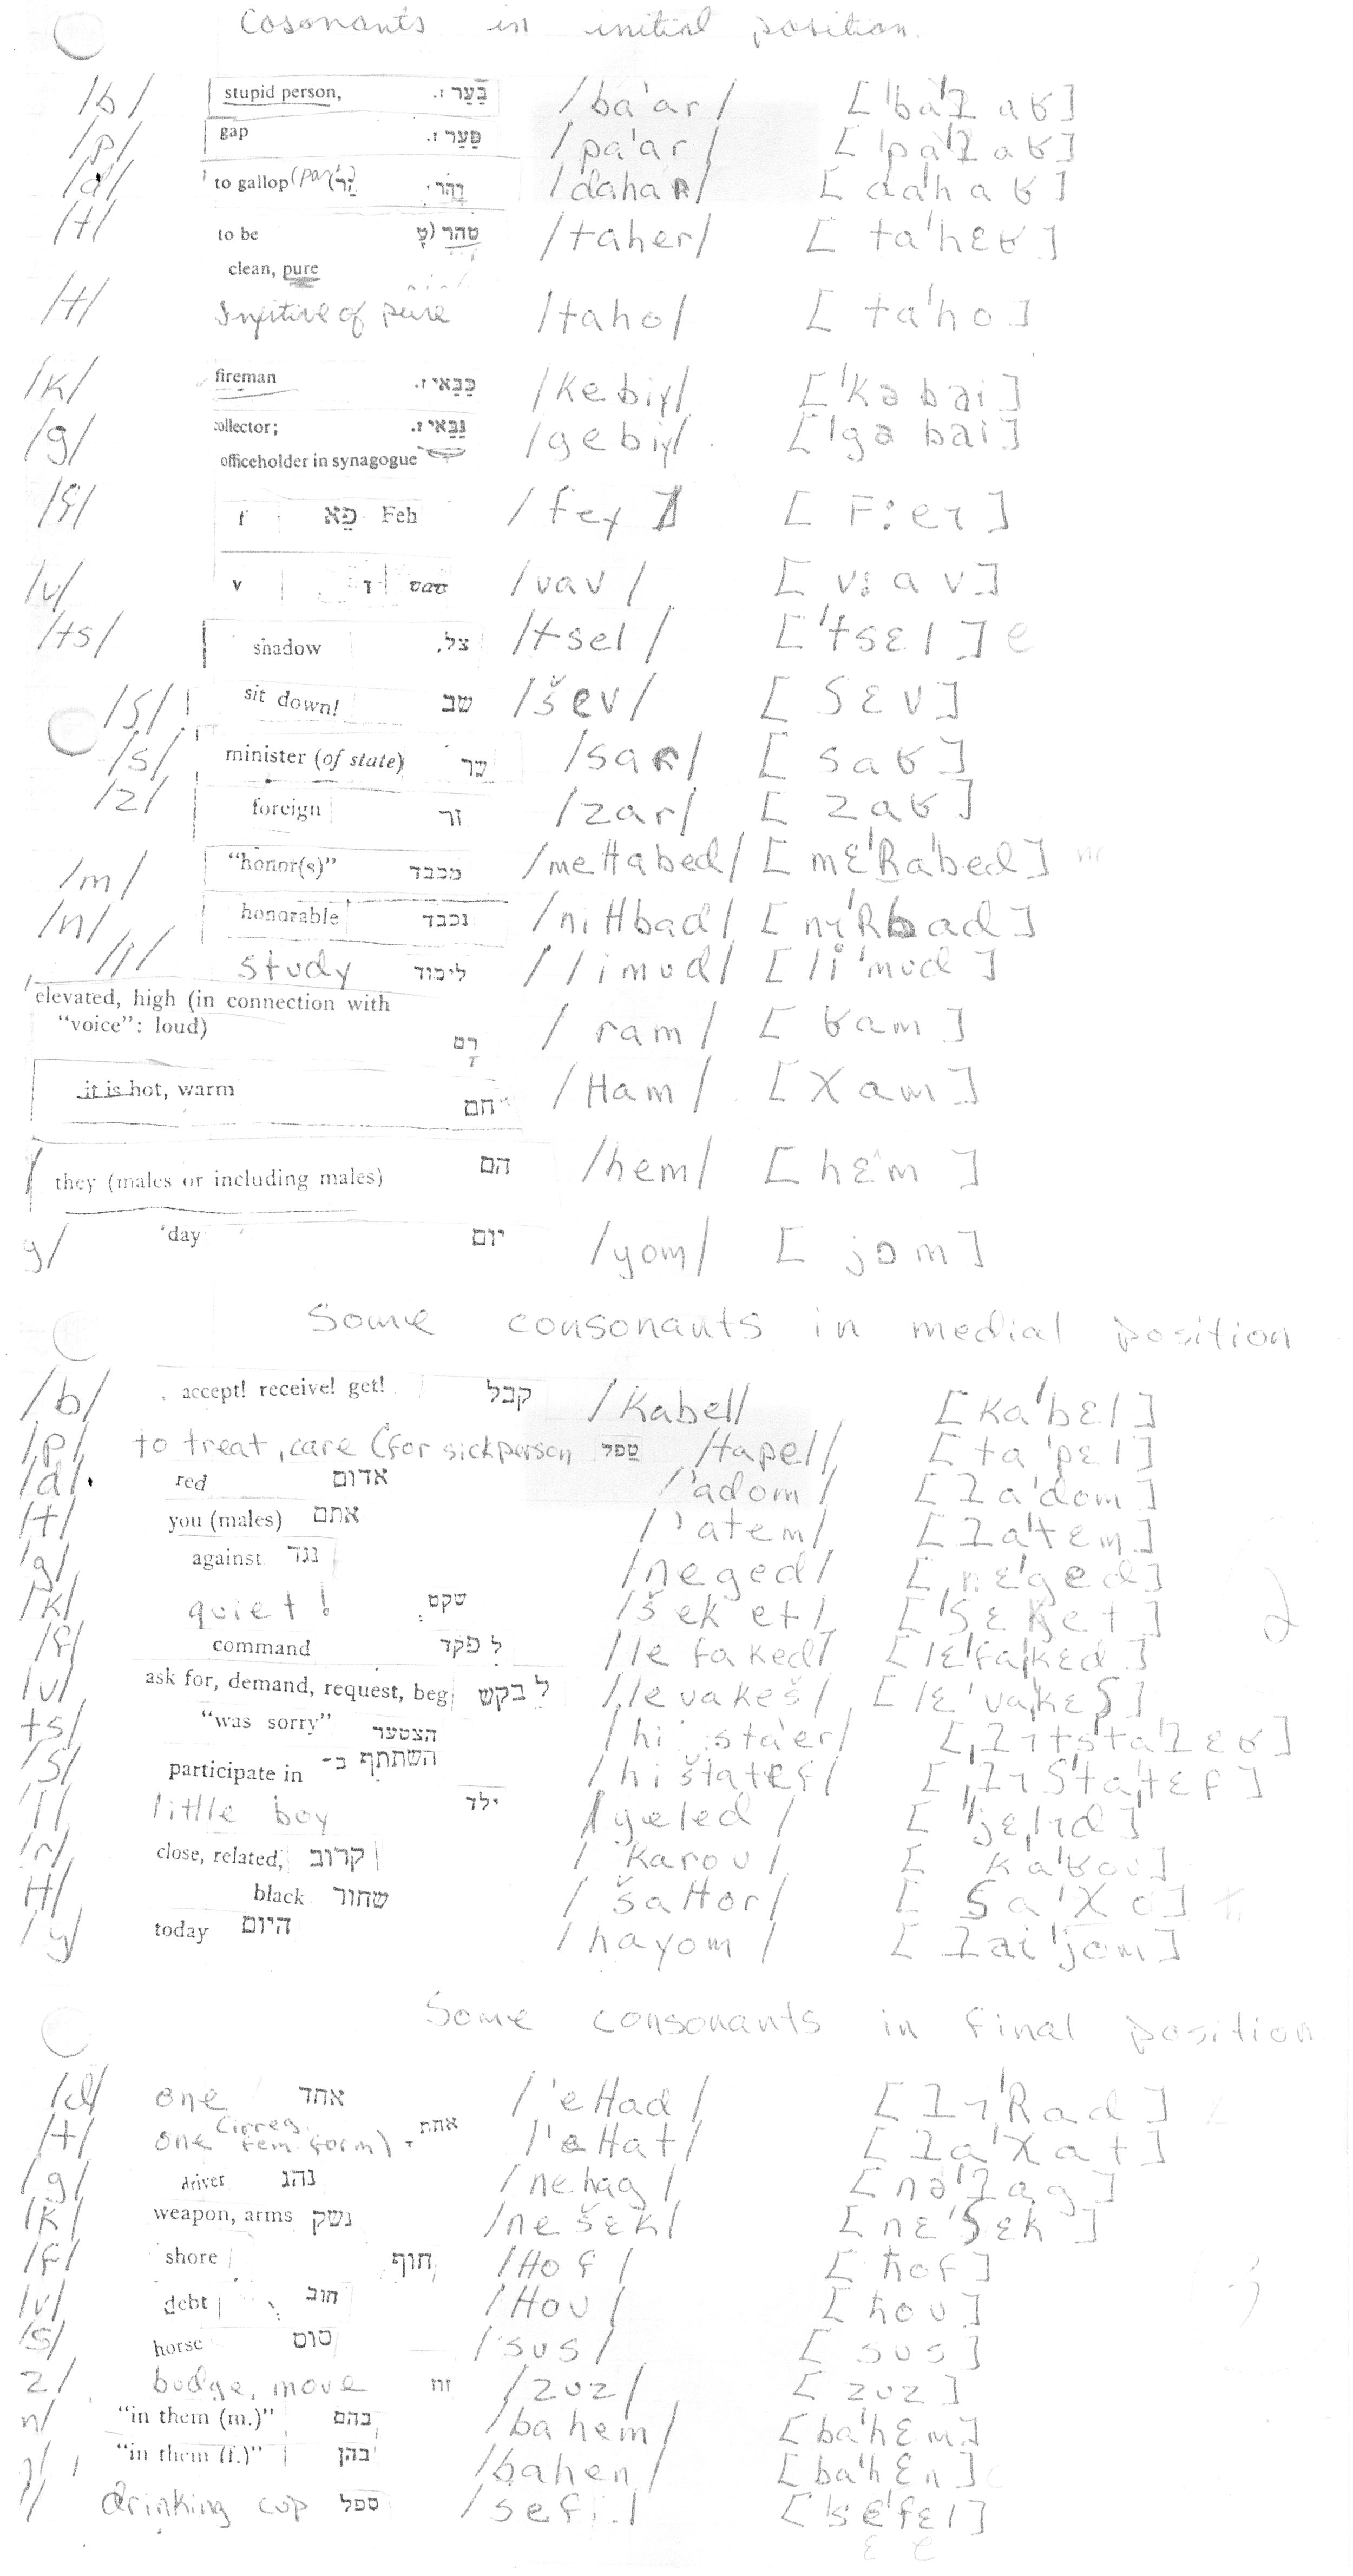 Cosonants in initial position.
/b/ stupid person, בַּעַר ז. /ba'ar/ ['ba'ʔaʁ]
/p/ gap פַּעַר ז. /pa'ar/ ['pa'ʔaʁ]
/d/ to gallop דָּהַר /dahaR/ [da'haʁ]
/t/ to be טהר /taher/ [ta'hɛʁ]
clean, pure
/t/ Infitive of pure /taho/ [ta'ho]
/k/ fireman כַּבַּאי ז. /kebiy/ ['kəbai]
/g/ collector; גַּבַּאי ז. /gebiy/ ['gəbai]
officeholder in synagogue
/f/ f פא Feh /fey/ [F:eɿ]
/v/ v ו vav /vav/ [v:av]
/ts/ shadow צל /tsel/ ['tsɛl] e
/ʃ/ sit down! שב /šev/ [ʃɛv]
/s/ minister (of state) שר /saR/ [saʁ]
/z/ foreign זר /zar/ [zaʁ]
/m/ "honor(s)" מכבד /meHabed/ [mɛ'Ra'bed]
/n/ honorable נכבד /niHbad/ [nɿ'Rbad]
/l/ study לימוד /limud/ [li'mud]
elevated, high (in connection with
"voice": loud) רָם /ram/ [ʁam]
it is hot, warm חם /Ham/ [χam]
they (males or including males) הם /hem/ [hɛm]
y/ day יום /yom/ [jom]
Some consonants in medial position
/b/ accept! receive! get! קבל /kabel/ [ka'bɛl]
/p/ to treat, care (for sick person טפל /tapel/ [ta'pɛl]
/d/ red אדום /'adom/ [ʔa'dom]
/t/ you (males) אתם /'atem/ [ʔa'tɛm]
/g/ against נגד /neged/ [ˌnɛ'ged]
/k/ quiet! שקט /šeket/ ['ʃɛket]
/f/ command ל פקד /le faked/ [lɛ'faˌkɛd]
/v/ ask for, demand, request, beg ל בקש /levakeš/ [lɛ'vaˌkɛʃ]
ts/ "was sorry" הצטער /hi sta'er/ [ˌʔɿtsta'ʔɛʁ]
/ʃ/ participate in השתתף ב- /hištatef/ [ˌʔɿʃ'taˌtɛf]
/l/ little boy ילד /yeled/ ['jɛˌlɿd]
/r/ close, related, קרוב /karov/ [ka'ʁov]
H/ black שחור /šaHor/ [ʃa'χo]
/y/ today היום /hayom/ [ʔai'jom]
Some consonants in final position
/d/ one אחד /'eHad/ [ʔɿ'Rad]
/t/ one (irreg. fem. form) אחת /'aHat/ [ʔa'χat]
/g/ driver נהג /nehag/ [nə'ʔag]
/k/ weapon, arms נשק /nešek/ [nɛ'ʃɛk]
/f/ shore חוף /Hof/ [ħof]
/v/ debt חוב /Hov/ [ħov]
/s/ horse סוס /sus/ [sus]
z/ budge, move זוז /zuz/ [zuz]
"in them (m.)" בהם /bahem/ [ba'hɛm]
"in them (f.)" בהן /bahen/ [ba'hɛn]
drinking cup ספל [sɛ'fɛl]
ɛ e